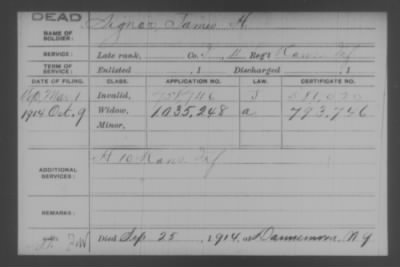 DEAD
NAME OF SOLDIER: Signor, James H.
SERVICE: Late rank, Co. I, 11 Reg't Kans Inf
TERM OF SERVICE: Enlisted , 1 Discharged , 1
DATE OF FILING. CLASS. APPLICATION NO. LAW. CERTIFICATE NO.
Invalid,
1914 Oct. 9 Widow, 1035.248 a 793.746
Minor,
ADDITIONAL SERVICES: H 10 Kans Inf
REMARKS:
Died Sep 25, 1914, at Dannemora, N.Y